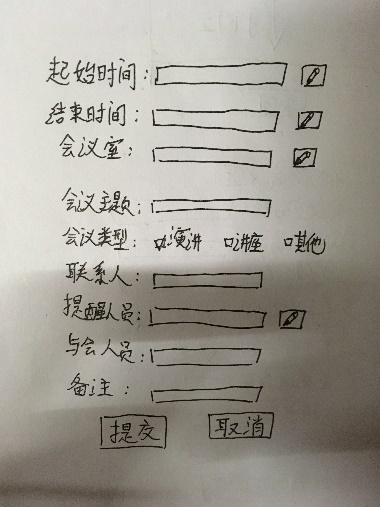 起始时间:
结束时间:
会议室:
会议主题:
会议类型: 演讲 讲座 其他
联系人:
提醒人员:
与会人员:
备注:
提交 取消